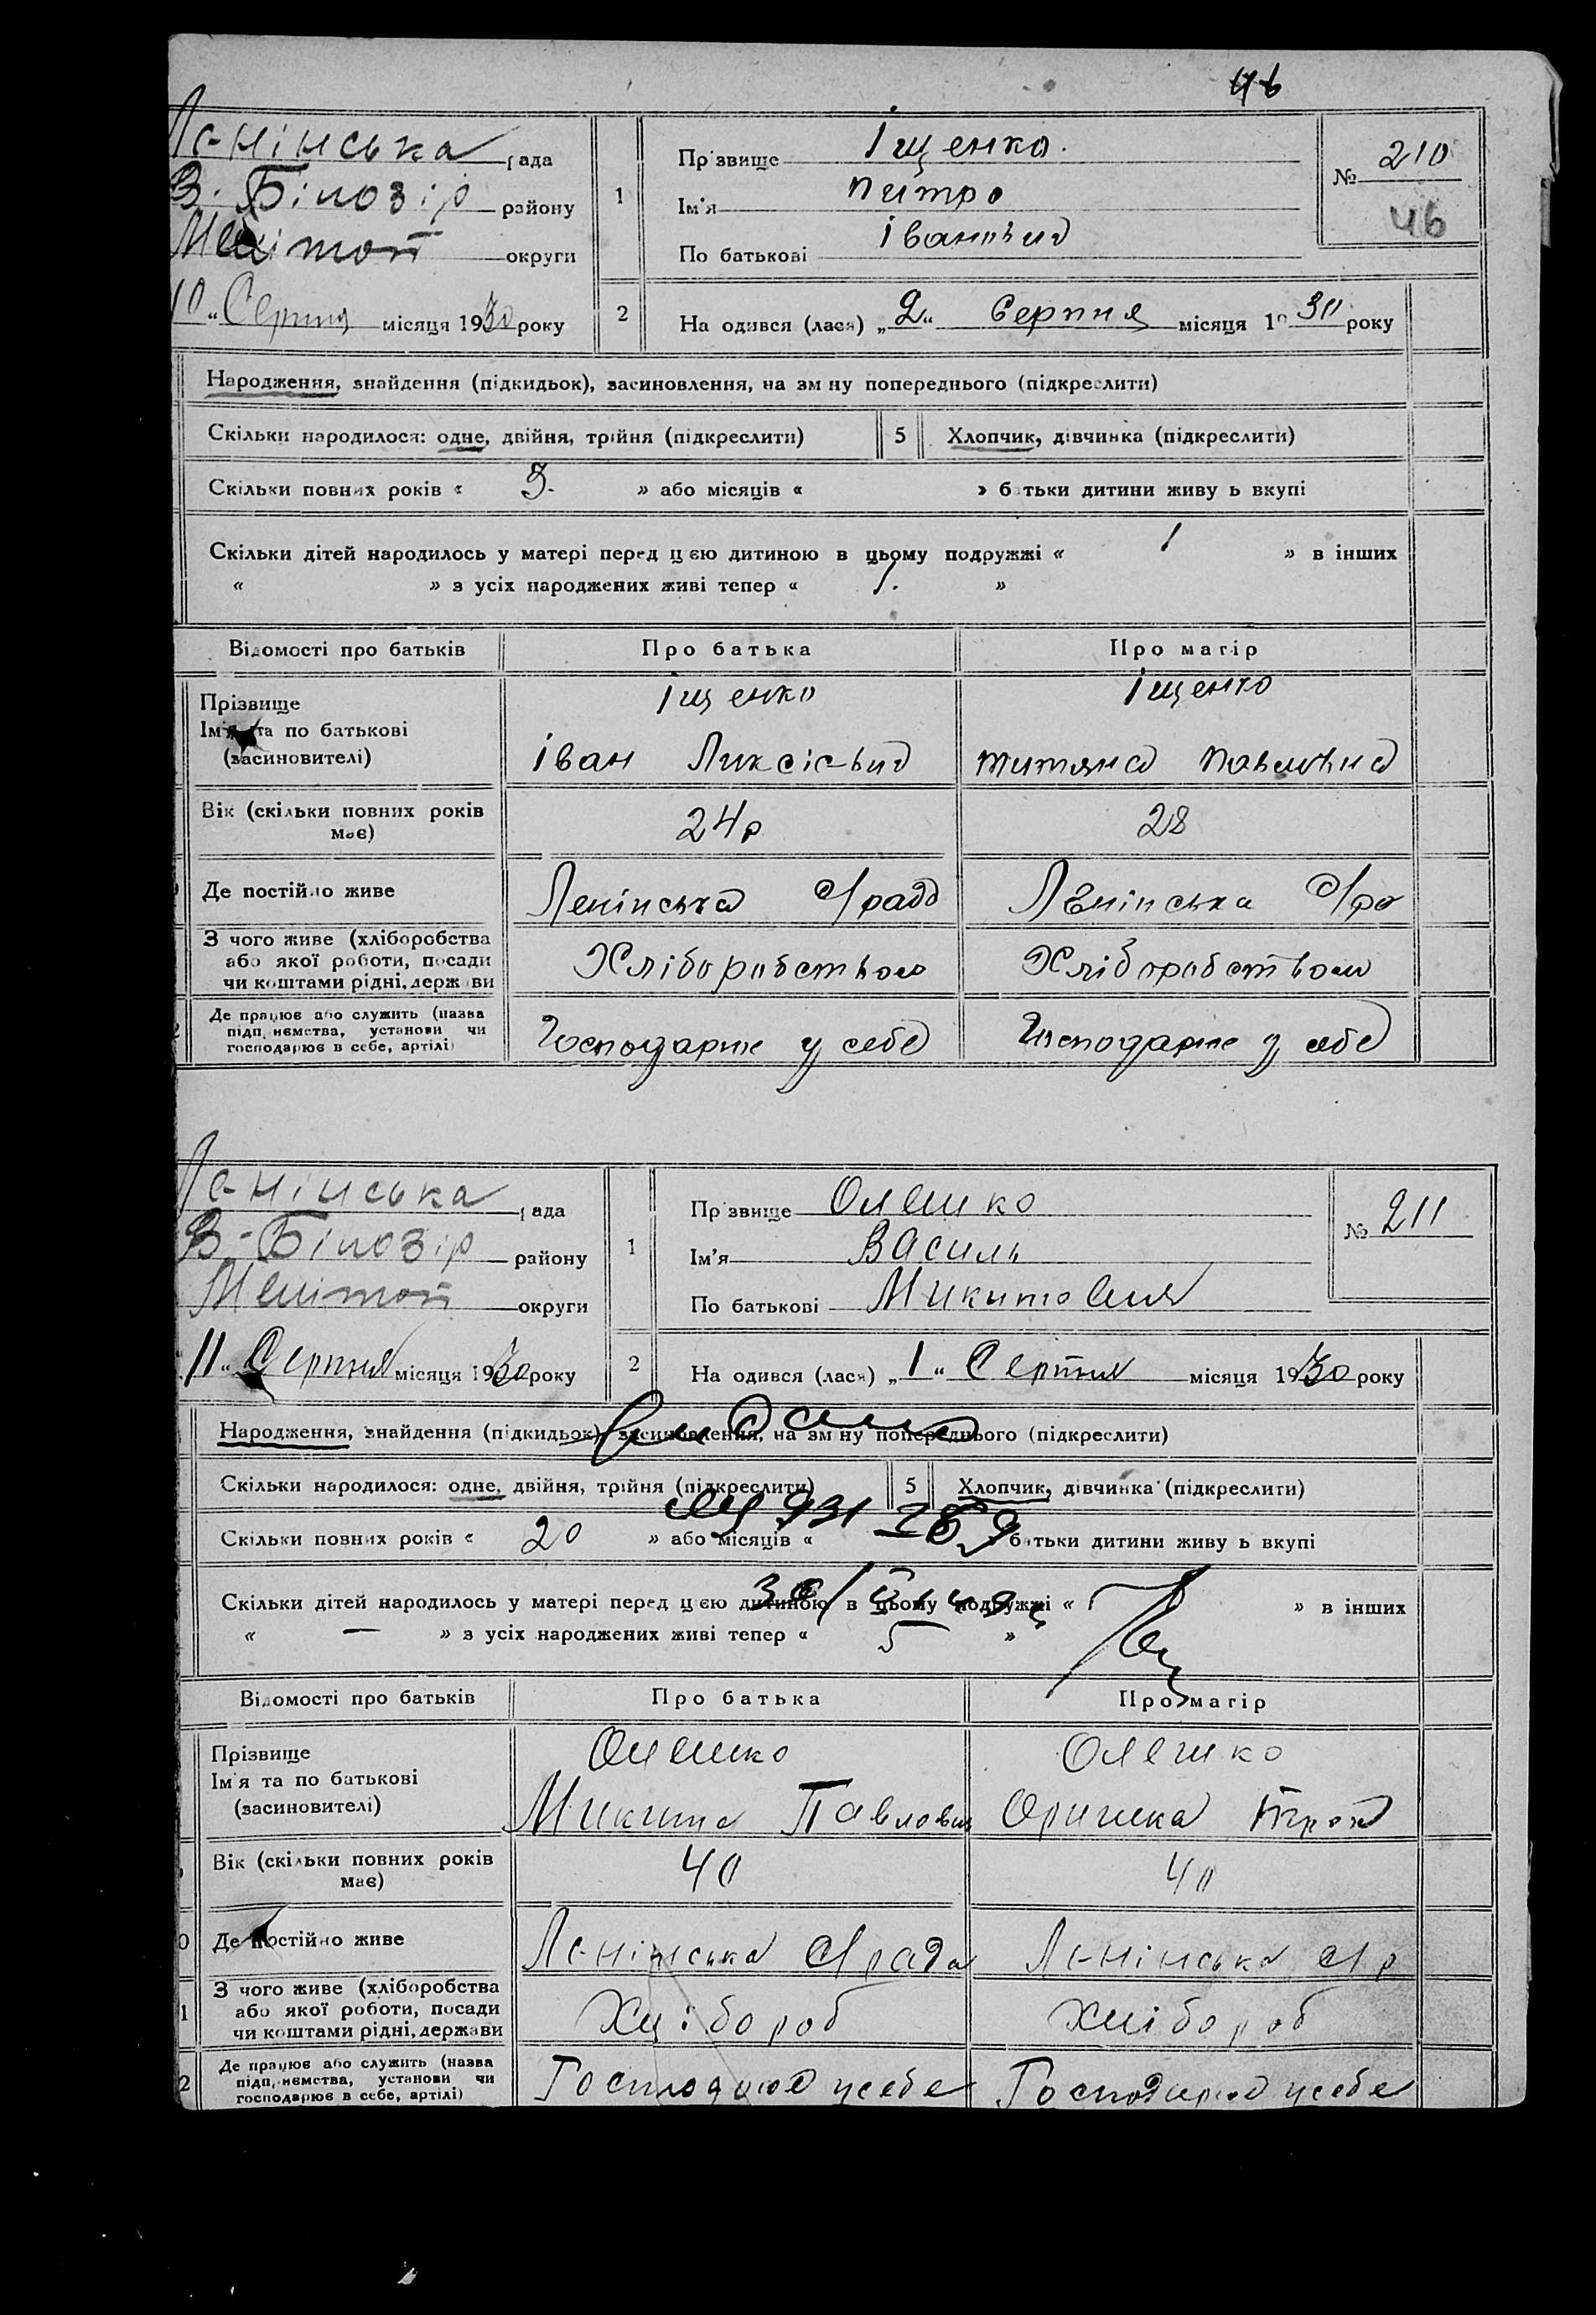 46
Ленінська рада
В. Білозір району
Меліtoп округи
10 „ Серпня місяця 1930 року
1
Прізвище Іщенко.
Ім'я Питро
По батькові Іванович
№ 210
46
2
На одився (лася) „ 2 “ Серпня місяця 19 30 року
Народження, знайдення (підкидьок), засиновлення, на зм ну попереднього (підкреслити)
Скільки народилося: одне, двійня, трійня (підкреслити) 5 Хлопчик, дівчинка (підкреслити)
Скільки повних років « 3. » або місяців « » батьки дитини живу ь вкупі
Скільки дітей народилось у матері перед цією дитиною в цьому подружжі « 1 » в інших
« » з усіх народжених живі тепер « 1. »
Відомості про батьків Про батька Про матір
Прізвище
Ім'я та по батькові
(засиновителі)
Іщенко Іщенко
Іван Титяна
Вік (скільки повних років має)
24 р 28
Де постійно живе Ленінська с/рада Ленінська с/ра
З чого живе (хліборобства
або якої роботи, посади
чи коштами рідні, держави
Хліборобством Хліборобством
Де працює або служить (назва
підп, иємства, установи чи
господарює в себе, артілі)
у себе у себе
Ленінська рада
В-Білозір району
Меліtoп округи
11 „ Серпня місяця 1930 року
1
Прізвище Олешко
Ім'я Василь
По батькові Микитович
№ 211
2
На одився (лася) „ 1 “ Серпня місяця 1930 року
Народження, знайдення (підкидьок), засиновлення, на зм ну попереднього (підкреслити)
Скільки народилося: одне, двійня, трійня (підкреслити) 5 Хлопчик, дівчинка (підкреслити)
Скільки повних років « 20 » або місяців « батьки дитини живу ь вкупі
Скільки дітей народилось у матері перед цією дитиною в цьому подружжі « » в інших
« — » з усіх народжених живі тепер « 5 »
Відомості про батьків Про батька Про матір
Прізвище
Ім'я та по батькові
(засиновителі)
Олешко Олешко
Микита Павлович Оришка
Вік (скільки повних років має)
40 40
Де постійно живе Ленінська с/рада Ленінська с/р
З чого живе (хліборобства
або якої роботи, посади
чи коштами рідні, держави
Хлібороб Хлібороб
Де працює або служить (назва
підп, иємства, установи чи
господарює в себе, артілі)
усебе усебе